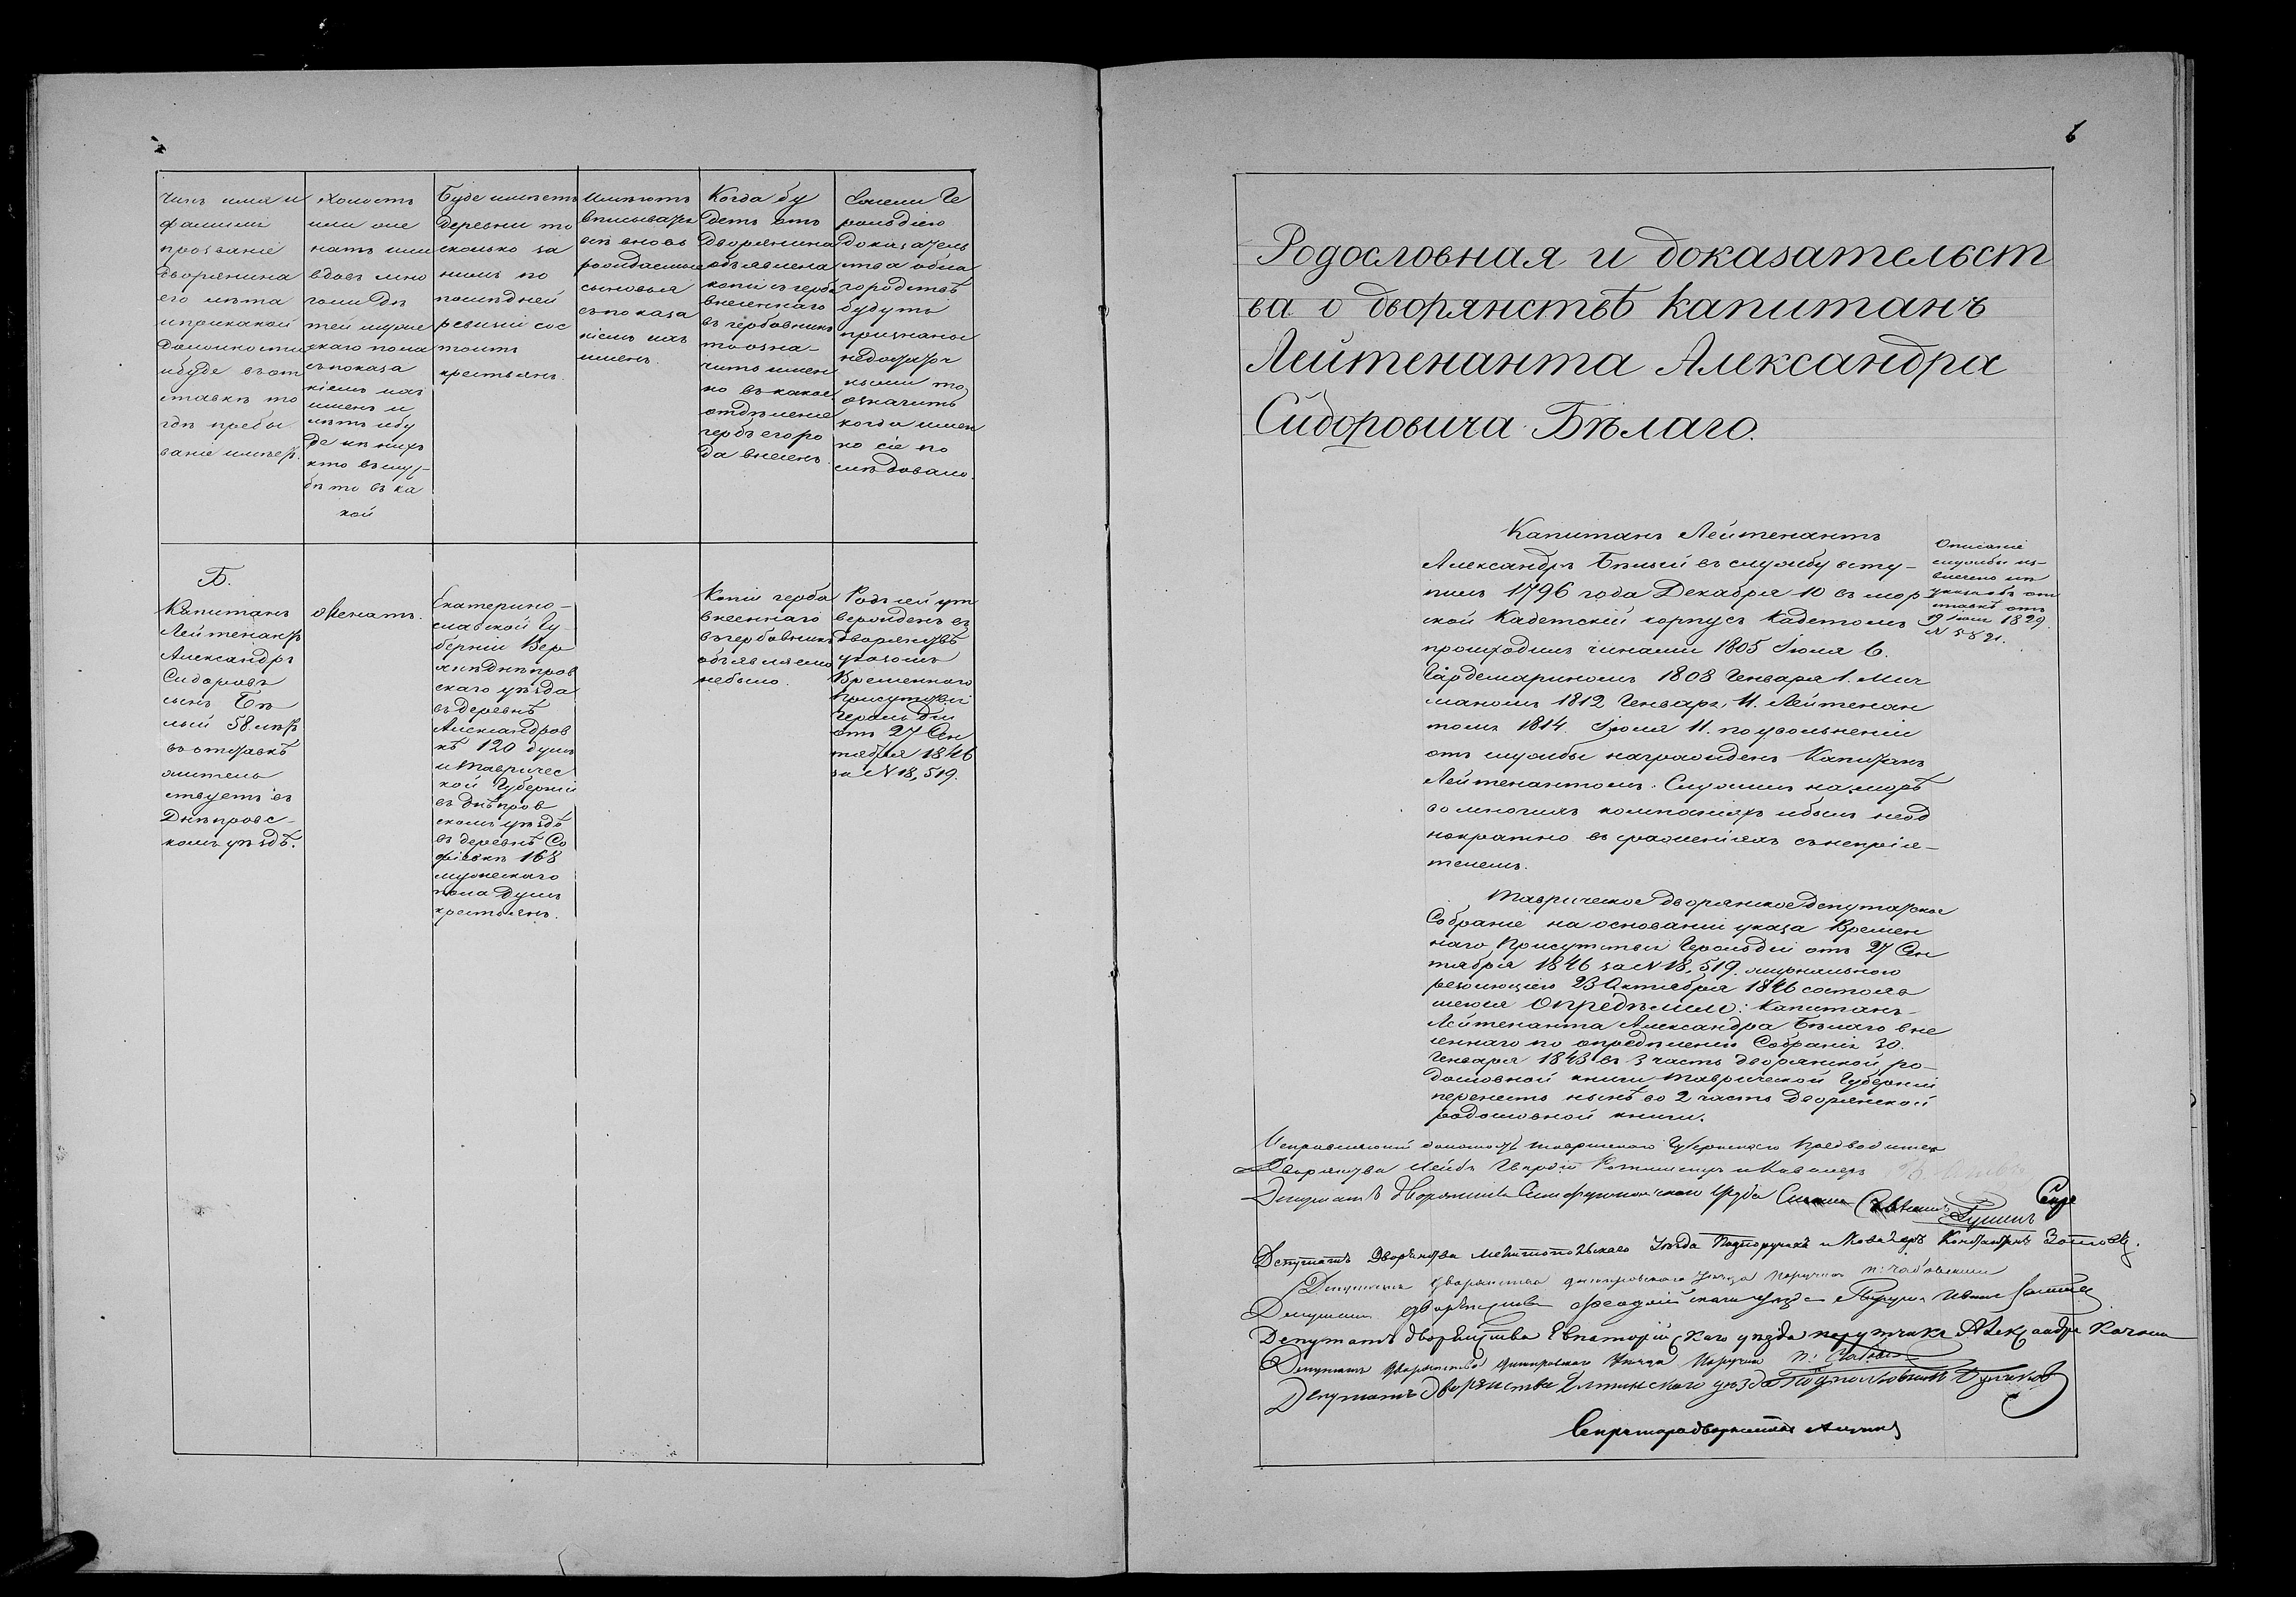 Чинъ имя и
фамилiи
прозванiе
дворянина
его лѣта
иприкакой
должности
ибуде въот
ставкѣ то
гдѣ пребы
ванiе имѣетъ.
Холостъ
или же
натъ или
вдовъ мно
голи дѣ
тей муже
скаго пола
съпоказа
нiемъ ихъ
именъ и
лѣтъ ибу
де изъ нихъ
кто въслуж
бѣ то въ ка
кой
Буде имѣетъ
деревни то
сколько за
нимъ по
послѣдней
ревизiи сос
тоитъ
крестьянъ.
Имѣютъ
вписыватъ
ся вновь
рождаемые
сыновья
съпоказа
нiемъ ихъ
именъ.
Когда бу
детъ отъ
Дворянина
объявлена
копiя съ герба
внесеннаго
въ гербовникъ
то озна-
чить имен
но въ какое
отдѣленiе
гербъ его ро
да внесенъ.
Еслели Ге
рольдiею
доказатель
ства обла
городствѣ
будутъ
признаны
недостаточ
ными то
означить
когда имен
но сiе по
слѣдовало.
Б.
Капитанъ
Лейтенантъ
Александръ
Сидоровъ
сынъ Бѣ
лый 58 лѣтъ
въ отставкѣ
житель
ствуетъ въ
Днѣпровс-
комъ уѣздѣ.
Женатъ.
Екатерино-
славской Гу-
бернiи Вер
хнеднѣпров
скаго уѣзда
въ деревнѣ
Александров
кѣ 120 душъ
и Тавричес
кой Губернiи
въ Днѣпров
скомъ уѣздѣ
въ деревнѣ Со
фiевкѣ 168
мужескаго
пола душъ
крестьянъ.
Копiи герба
внесеннаго
въгербовникъ
объявляемо
небыло.
Родъ ей ут
вержденъ въ
дворянствѣ
указомъ
Временнаго
Присутствiя
Герольдiи
отъ 27 Сен
тября 1846
за N 18,519.
6
Родословная и доказательст
ва о дворянствѣ Капитанъ
Лейтенанта Александра
Сидоровича Бѣлаго.
Капитанъ Лейтенантъ
Александръ Бѣлый въ службу всту-
пилъ 1796 года Декабря 10 въ мор
ской Кадетскiй корпусъ Кадетомъ
проиходилъ чинами 1805 Iюля 6.
Гардемариномъ 1808 Генваря 1. Мич
маномъ 1812 Генваря 11. Лейтенан
томъ 1814. Iюля 11. по увольненiи
отъ службы награжденъ Капитанъ
Лейтенантомъ. Служилъ на морѣ
во многихъ компанiяхъ ибылъ неод
нократно въ сраженiяхъ съ непрiя-
телемъ.
Описанiе
службы из-
влечено из
указа объ от
ставкѣ отъ
19 Iюля 1829.
N 5821.
Таврическое дворянское депутатское
Собранiе на основанiи указа Времен
наго Присутствiя Герольдiи отъ 27 Сен
тября 1846 за N 18,519. журнальною
резолюцiею 23 Октября 1846 состояв
шеюся Опредѣлило: Капитанъ-
Лейтенанта Александра Бѣлаго вне
сеннаго по опредѣленiю Собранiя 30.
Генваря 1843 въ 3 часть дворянской ро-
дословной книги Таврической Губернiи
перенесть нынѣ во 2 часть Дворянской
родословной книги.
Исправляющiй должность Таврическаго Губернскаго Предводителя
Дворянства Лейбъ Гвардiи Ротмистръ и Кавалеръ
Депутатъ дворянства Симферопольскаго Уѣзда
Депутатъ Дворянства Мелитопольскаго Уѣзда Подпоручикъ и Кавалеръ Константинъ
Депутатъ дворянства Днѣпровскаго Уѣзда Поручикъ
Депутатъ дворянства Феодосiйскаго Уѣзда Иванъ
Депутатъ дворянства Евпаторiйскаго уѣзда поручикъ Александръ
Депутатъ дворянства Днѣпровскаго Уѣзда Поручикъ
Депутатъ дворянства Ялтинскаго уѣзда Подполковникъ
Секретарь дворянства